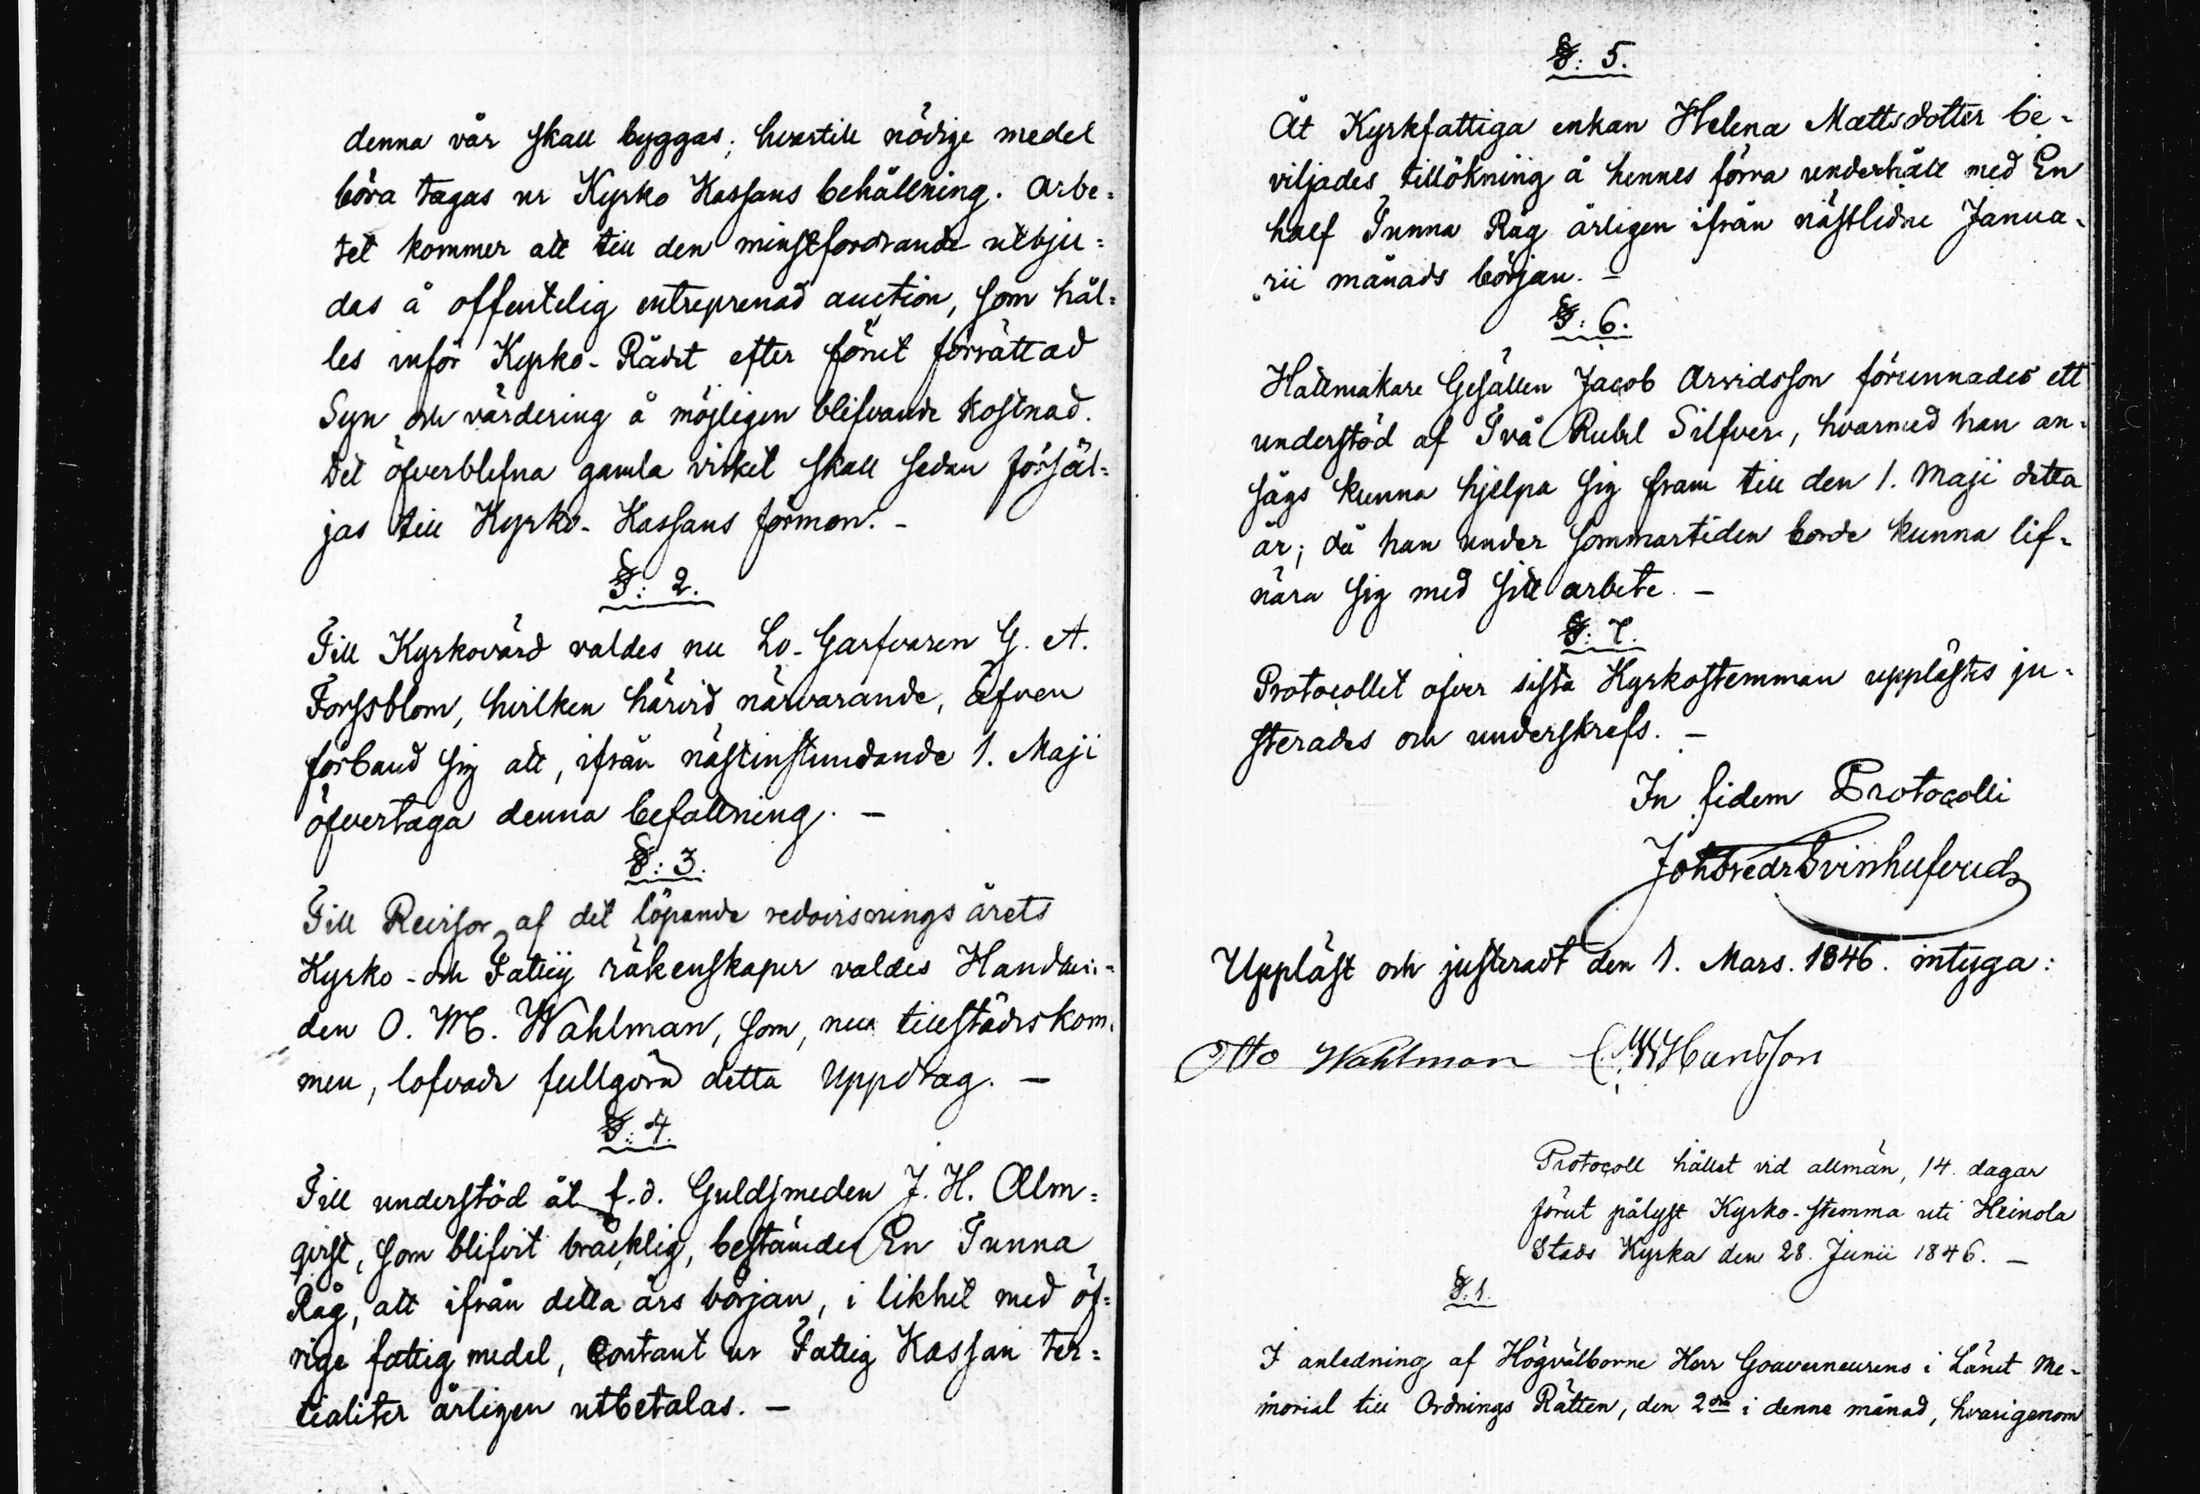 denna vår skall byggas; hvartill nödige medel
böra tagas ur Kyrko Kassans behållning. Arbe=
tet kommer att till den minstfordrande utbju=
das å offentelig entreprenad auction, som hål=
les inför Kyrko-Rådet efter förut förrättad
Syn och värdering å möjligen blifvande kostnad.
Det öfverblefna gamla virket skall sedan försäl=
jas till Kyrko-Kassans förmon. -
§: 2.
Till Kyrkovärd valdes nu Lo-Garfvaren G. A.
Forssblom, hvilken härvid närvarande, äfven
förband sig att, ifrån nästinstundande 1. Maji
öfvertaga denna befattning. -
§: 3.
Till Revisor af det löpande redovisnings årets
Kyrko- och Fattig räkenskaper valdes Handlan=
den O. M. Wahlman, som, nu tillstädeskom=
men, lofvade fullgöra detta uppdrag. -
§: 4.
Till understöd åt f.d. Guldsmeden J. H. Alm=
qvist, som blifvit bräcklig, bestämdes En Tunna
Råg, att ifrån detta års början, i likhet med öf=
rige fattig medel, Contant ur Fattig Kassan ter=
tialiter årligen utbetalas. -
§: 5.
Åt Kyrkfattiga enkan Helena Mattsdotter be=
viljades tillökning å hennes förra underhåll med En
half Tunna Råg årligen ifrån nästlidne Janua=
rii månads början. -
§: 6.
Hattmakare Gesällen Jacob Arvidsson förunnades ett
understöd af Två Rubel Silfver, hvarmed han an=
sågs kunna hjelpa sig fram till den 1. Maji detta
år; då han under sommartiden borde kunna lif=
nära sig med sitt arbete. -
§: 7.
Protocollet öfver sista Kyrkostemman upplästes ju=
sterades och underskrefs. -
In fidem Protocolli
Joh Fredr Svinhufvud
Uppläst och justeradt den 1. Mars. 1846. intyga:
Otto Wahlman C. W. Hansson
Protocoll hållet vid allmän, 14 dagar
förut pålyst Kyrko-stemma uti Heinola
Stads Kyrka den 28. Junii 1846. -
§. 1.
I anledning af Högvälborne Herr Gouverneurens i Länet Me=
morial till Ordnings Rätten, den 2dra i denne månad, hvarigenom